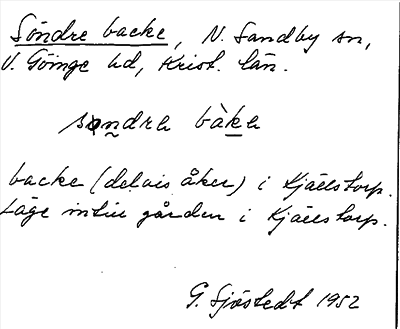 Söndre backe, N. Sandby sn,
V. Göinge hd, Krist. län.
søndrə bàkə
backe (delvis åker) i Kjällstorp.
Läge intill gården i Kjällstorp.
G. Sjöstedt 1952